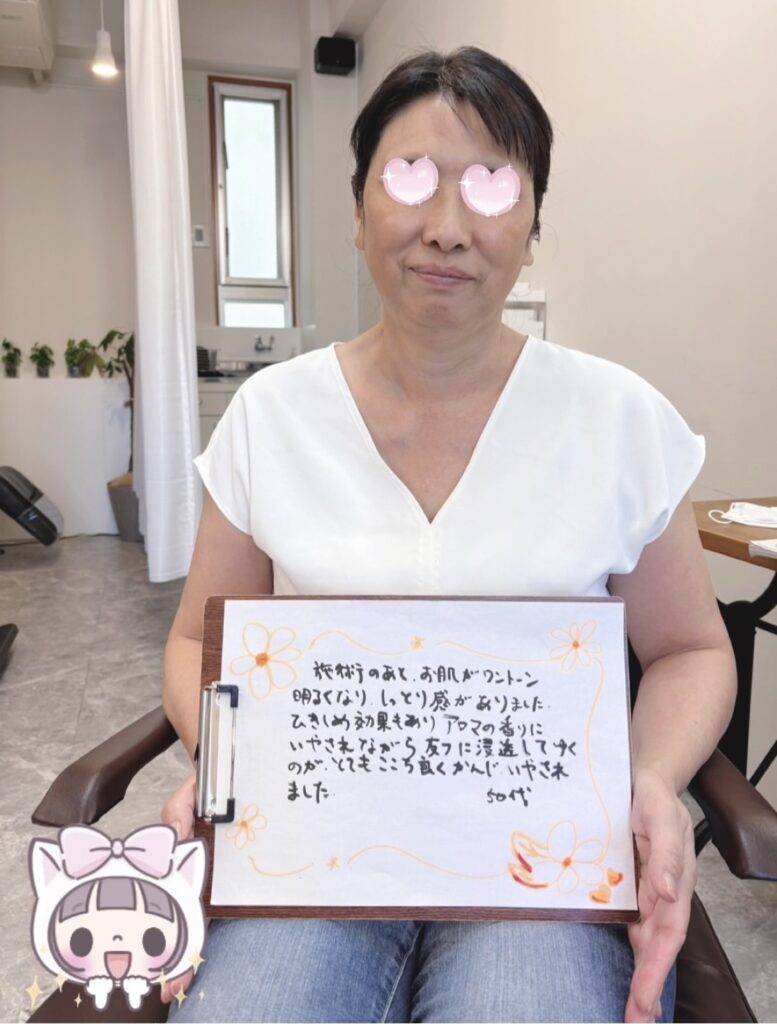 施術のあと、お肌がワントーン
明るくなり、しっとり感がありました。
ひきしめ効果もあり アロマの香りに
いやされながら 友フに浸透してゆく
のが、とてもここち良くかんじ いやされ
ました。 50代